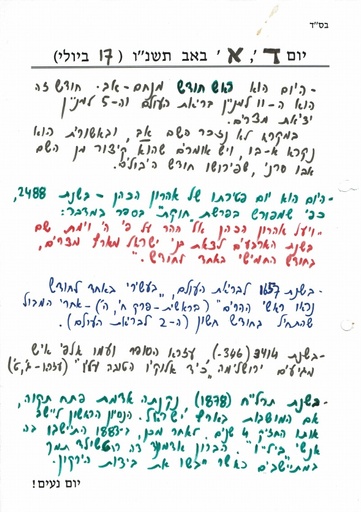 בס"ד
יום ד', א' באב תשנ"ו (17 ביולי)
- היום הוא ראש חודש מנחם-אב. חודש זה
הוא ה-11 למנין בריאת העולם וה-5 למנין
יציאת מצרים.
במקרא לא נזכר השם אב, ובאשורית הוא
נקרא א-בו, ויש אומרים שהוא קיצור מן השם
אבו סרני, שפירושו חודש היבולים.
- היום הוא יום פטירתו של אהרון הכהן - בשנת 2488,
כפי שמפורש בפרשת "חוקת" בספר במדבר:
"ויעל אהרון הכהן אל ההר על פי ה' וימת שם
בשנת הארבעים לצאת בני ישראל מארץ מצרים,
בחודש החמישי באחד לחודש."
- בשנת 1657 לבריאת העולם, "בעשירי באחד לחודש
נראו ראשי ההרים" (בראשית-פרק ח', ה') - אחרי המבול
שהתחיל בחודש חשון (ה-2 לבריאת העולם).
- בשנת 3414 (346-) עזרא הסופר ועמו אלפי איש
מגיעים ירושלימה "כיד אלוקיו הטובה עליו" (עזרא-ז',ט')
- בשנת תרל"ח (1878) נקנתה אדמת פתח תקוה,
אם המושבות בארץ ישראל. הנסיון הראשון ליישב
אותו החזיק 4 שנים. לאחר מכן, ב-1883 התיישבו בה
אנשי ביל"ו. הברון אדמונד דה רוטשילד תמך
במתיישבים כאשר יבשו את ביצות הירקון.
יום נעים!